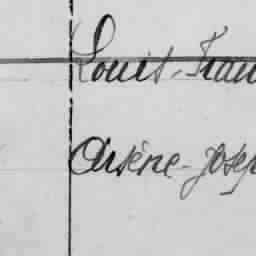 Louis-Fran
Arsène-Josep